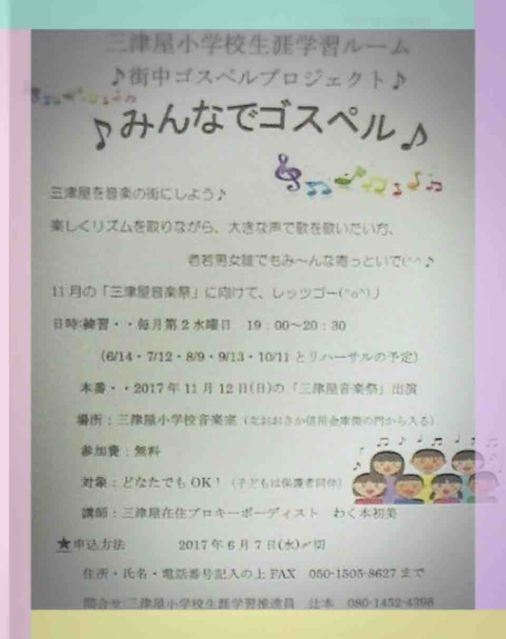 三津屋小学校生涯学習ルーム
♪街中ゴスペルプロジェクト♪
♪みんなでゴスペル♪
三津屋を音楽の街にしよう♪
楽しくリズムを取りながら、大きな声で歌を歌いたい方、
老若男女誰でもみ～んな寄っといで(^^♪
11月の「三津屋音楽祭」に向けて、レッツゴー(^o^)丿
日時:練習・・毎月第2水曜日 19:00～20:30
(6/14・7/12・8/9・9/13・10/11とリハーサルの予定)
本番・・2017年11月12日(日)の「三津屋音楽祭」出演
場所:三津屋小学校音楽室(北おおさか信用金庫側の門から入る)
参加費:無料
対象:どなたでもOK!(子どもは保護者同伴)
講師:三津屋在住プロキーボーディスト わく本初美
★申込方法 2017年6月7日(水)〆切
住所・氏名・電話番号記入の上FAX 050-1505-8627まで
問合せ:三津屋小学校生涯学習推進員 辻本 080-1452-4398